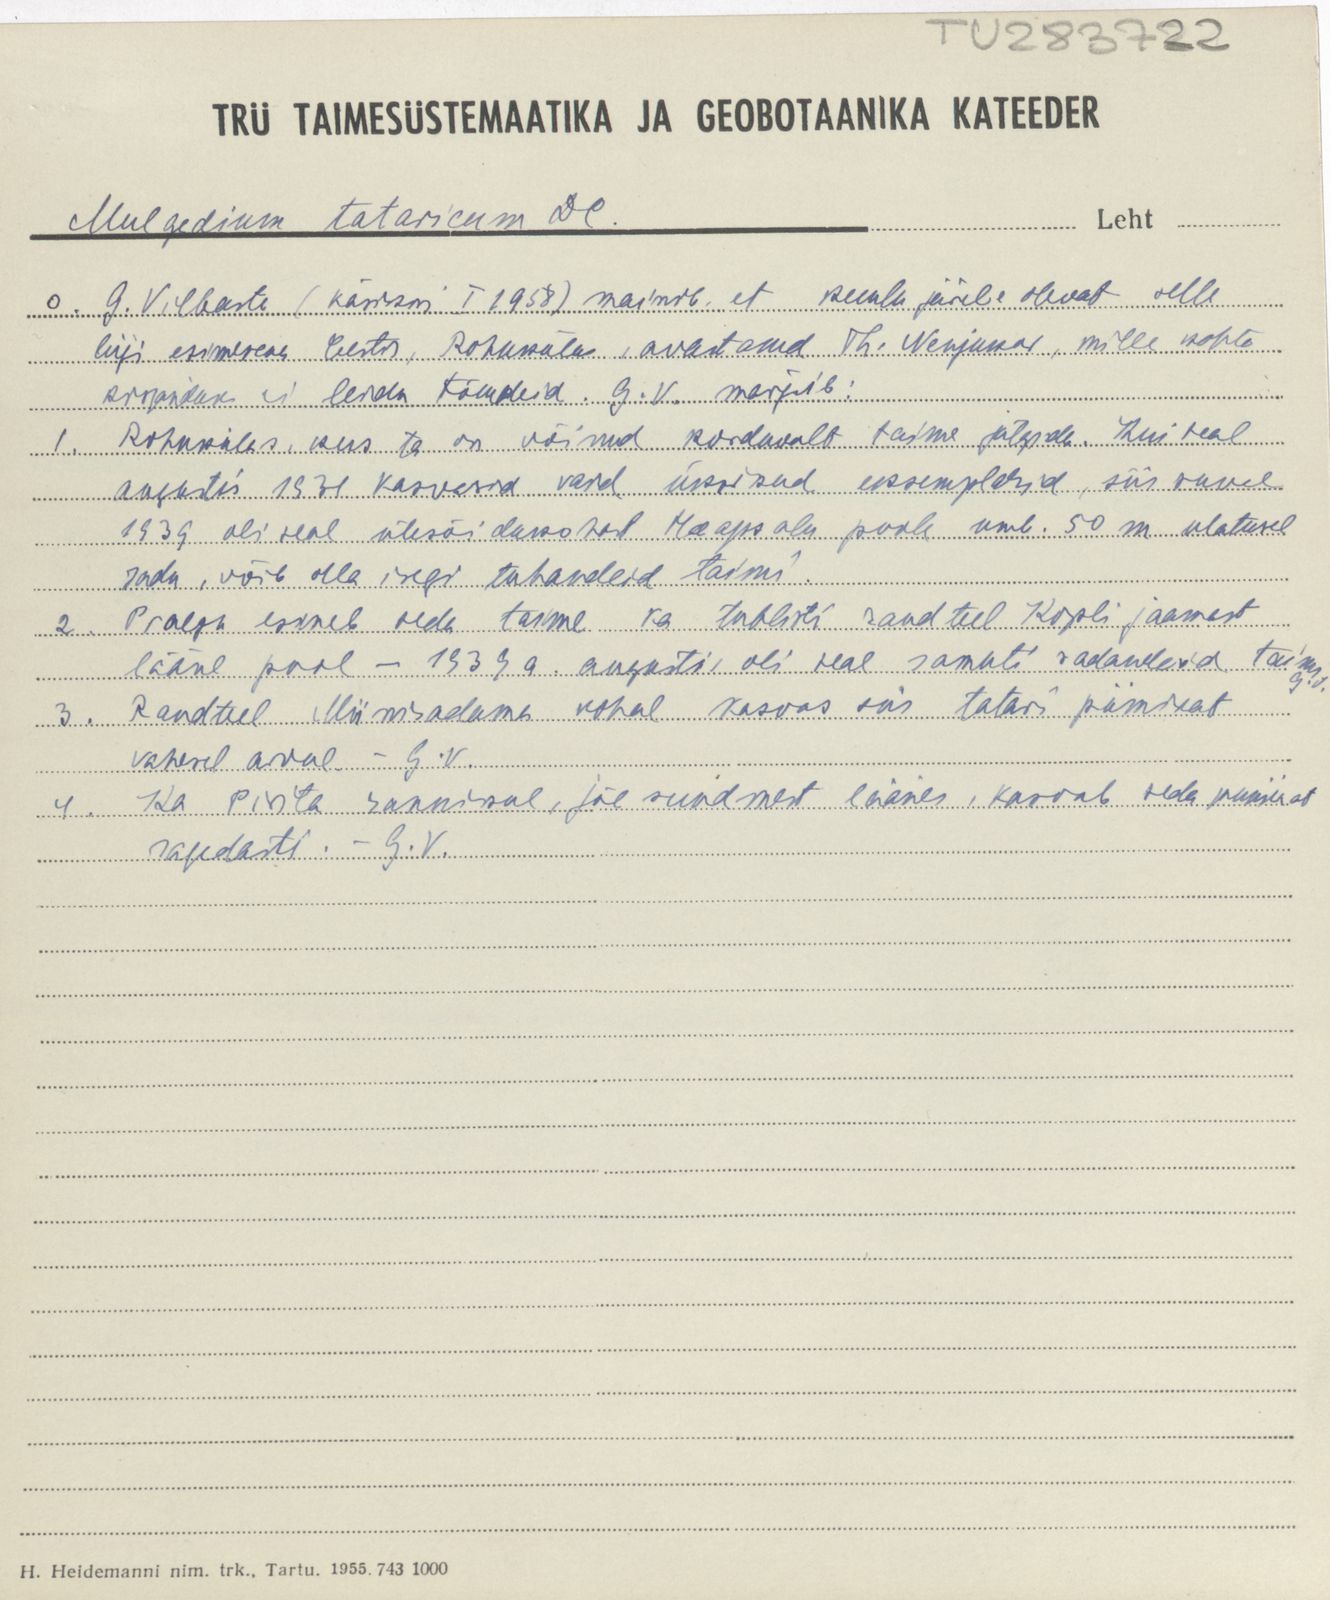 TU283722
TRÜ TAIMESÜSTEMAATIKA JA GEOBOTAANIKA KATEEDER
Mulgedium tataricum DC. Leht
0. G. Vilbaste (käsikiri I 1958) mainib, et kuulu järele olevat selle
liigi esimesena Eestis, Rohukülas, avastanud Th. Nenjukov, mille kohta
ei leidu tõendeid. G.V. märgib:
1. Rohukülas, kus ta on võinud korduvalt taime jälgida. Kui seal
augustis 1931 kasvasid vaid üksikud eksemplarid, siis suvel
1939 oli seal ülesõidukohast Haapsalu poole umb. 50 m ulatusel
sadu, võib olla isegi tuhandeid taimi.
2. Praegu esineb seda taime ka tublisti raudteel Kopli jaamast
lääne pool – 1939 a. augustis oli seal samuti sadandeid taimi G.V.
3. Raudteel Miinisadama kohal kasvas siis tatari piimikat
vähesel arvul – G.V.
4. Ka Pirita rannikul, jõe suudmest läänes, kasvab seda piimikat
sagedasti. – G.V.
H. Heidemanni nim. trk., Tartu. 1955. 743 1000